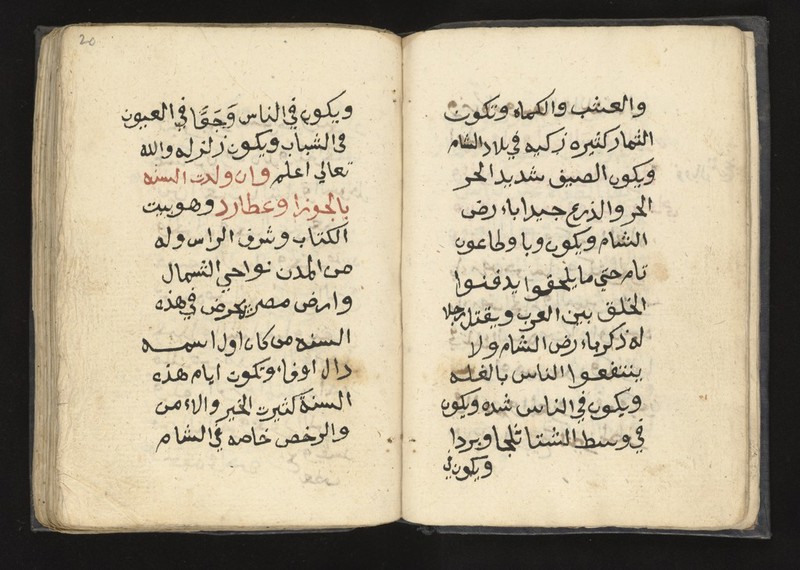 والعشب والكماه وتكون
الثمار كثيره زكيه في بلاد الشام
ويكون الصيف شديد الحر
الحر والذرع جيدا باء رض
الشام ويكون وبا وطاعون
تام حتي ما يلحقوا يدفنوا
الخلق بين العرب ويقتل رجلا
له ذكر باء رض الشام ولا
ينتفعوا الناس بالغله
ويكون في الناس شده ويكون
في وسط الشتا ثلجا وبردا
ويكون في
20
ويكون في الناس وجعا في العيون
في الشباب ويكون زلزله والله
تعالي اعلم وان ولدت السنه
بالجوزا وعطارد وهو بيت
الكتاب وشرف الراس وله
من المدن نواحي الشمال
وارض مصر يمرض في هذه
السنه من كان اول اسمه
دال اوفاء وتكون ايام هذه
السنة كثيرت الخير والاء من
والرخص خاصه في الشام